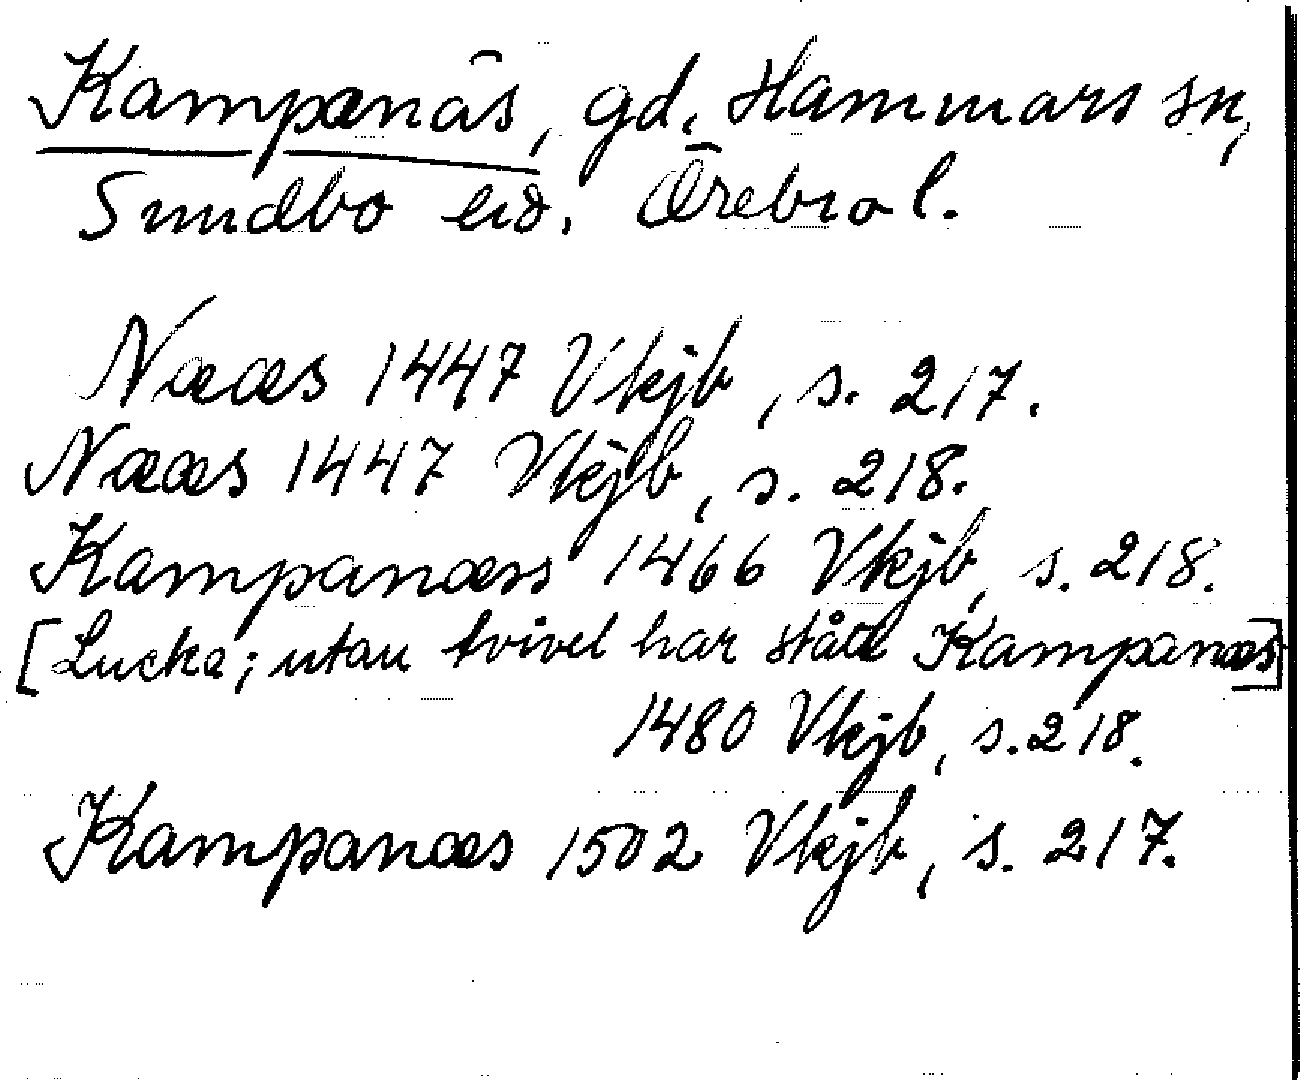 Kampanäs, gd, Hammars sn,
Sundbo hd. Örebro l.
Nææs 1447 Vkjb, s. 217.
Nææs 1447 Vkjb, s. 218.
Kampanæss 1466 Vkjb, s. 218.
[Lucka; utan tvivel har stått Kampanæs]
1480 Vkjb, s. 218.
Kampanæs 1502 Vkjb, s. 217.